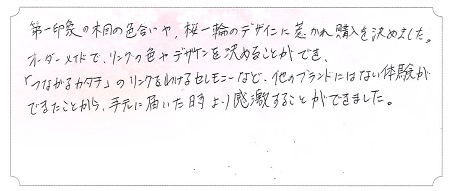 第一印象の木目の色合いや、桜一輪のデザインに惹かれ購入を決めました。
オーダーメイドで、リングの色やデザインを決めることができ、
「つながるカタチ」のリングを分けるセレモニーなど、他のブランドにはない体験が
できたことから、手元に届いた時より感激することができました。